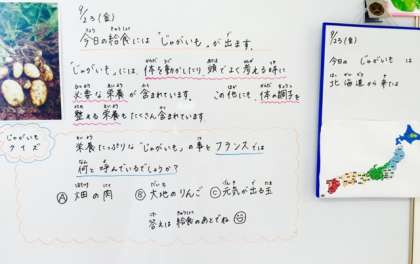 9/23(金)
今日の給食には「じゃがいも」が出ます。
「じゃがいも」には、体を動かしたり、頭でよく考える時に
必要な栄養が含まれています。この他にも、体の調子を
整える栄養もたくさん含まれています。
じゃがいも
クイズ
栄養たっぷりな「じゃがいも」の事をフランスでは
何と呼んでいるでしょうか?
Ⓐ畑の肉 Ⓑ大地のりんご Ⓒ元気が出る玉
答えは給食のあとでね
9/23(金)
今日の じゃがいも は
北海道から来たよ